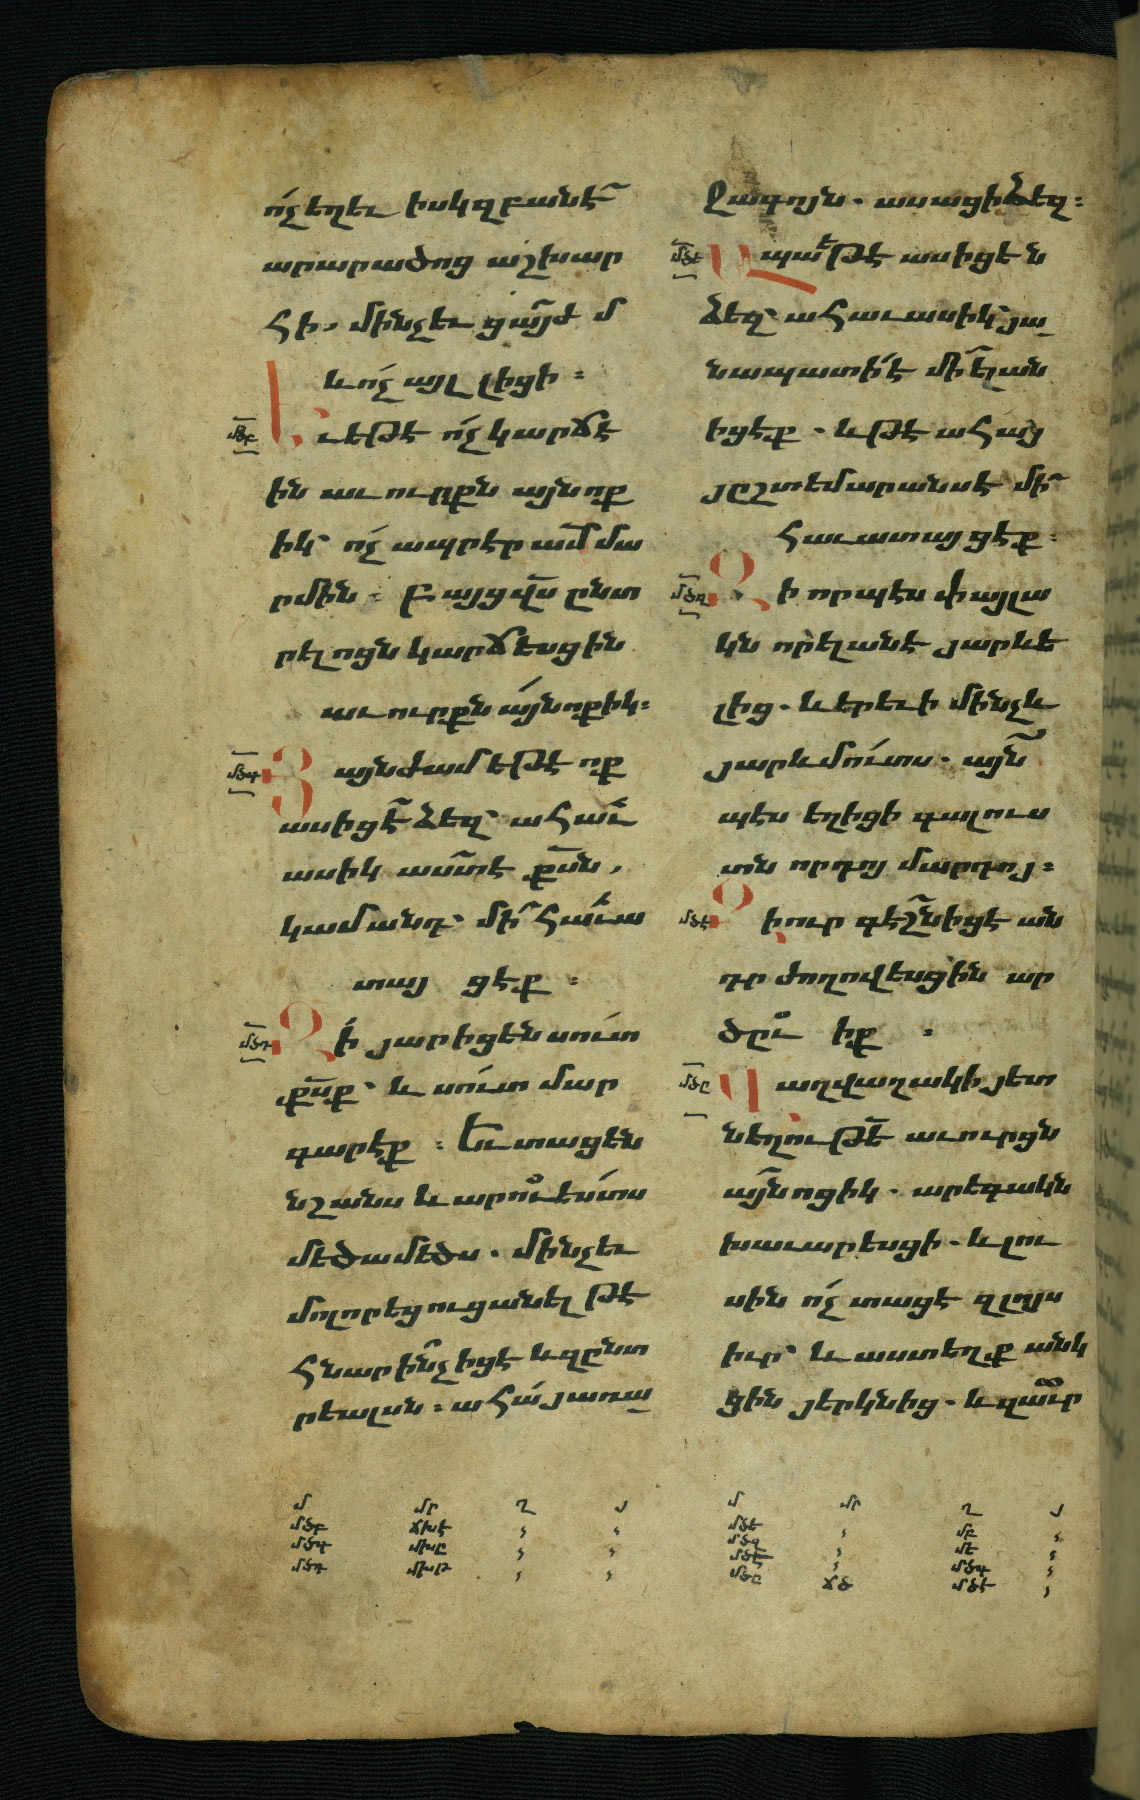 ո՛չ եղեւ իսկզբանէ՞
արարածոց աշխար
հի, մինչեւ ցայժմ
և ո՛չ այլ լիցի ։
մծբ Եւ եթէ ո՛չ կարճէ
ին աւուրքն այնոք
իկ՝ ո՛չ ապրէր ամ մա
րմին ։ Բայց վս ընտ
րելոցն կարճեսցին
աւուրքն այնոքիկ։
մծգ Յայնժամ եթէ ոք
ասիցէ ձեզ՝ ահաւ
ասիկ աստ է քսն,
կամ անդ՝ մի հաւա
տայ ցէք ։
մծդ Զի յարիցեն սուտ
քսք՝ և սուտ մար
գարէք ։ Եւ տացեն
նշանս և արուեստս
մեծամեծս . մինչեւ
մոլորեցուցանել թէ
հնար ինչ իցէ և զընտ
րեալսն ։ ահա յառա
ջագոյն . ասացի ձեզ ։
մծե Ապա եթէ ասիցեն
ձեզ՝ ահաւասիկ յա
նապատի է մի ելան
իցէք . և թէ ահայ
յըշտեմարանս է մի՛
հաւատայցէք ։
մծզ Զի որպէս փայլա
կն որ ելանէ յարևե
լից . և երեւի մինչև
յարևմուտս . այն
պէս եղիցի գալուս
տն որդոյ մարդոյ ։
մծէ Զի ուր գէշն իցէ ան
դր ժողովեսցին ար
ծըւ իք ։
մծը Վաղվաղակի յետ
նեղութե աւուրցն
այնոցիկ . արեգակն
խաւարեսցի . և լու
սին ո՛չ տացէ զլոյս
իւր՝ և աստեղք անկ
ցին յերկնից . և զաւր
մ մր ղ յ
մծբ ճխէ , ,
մծգ մխը , ,
մծդ մխթ , ,
մ մր ղ յ
մծե , մբ ,
մծզ , մե ,
մծէ , մծգ ,
մծը ճծ մծէ ,